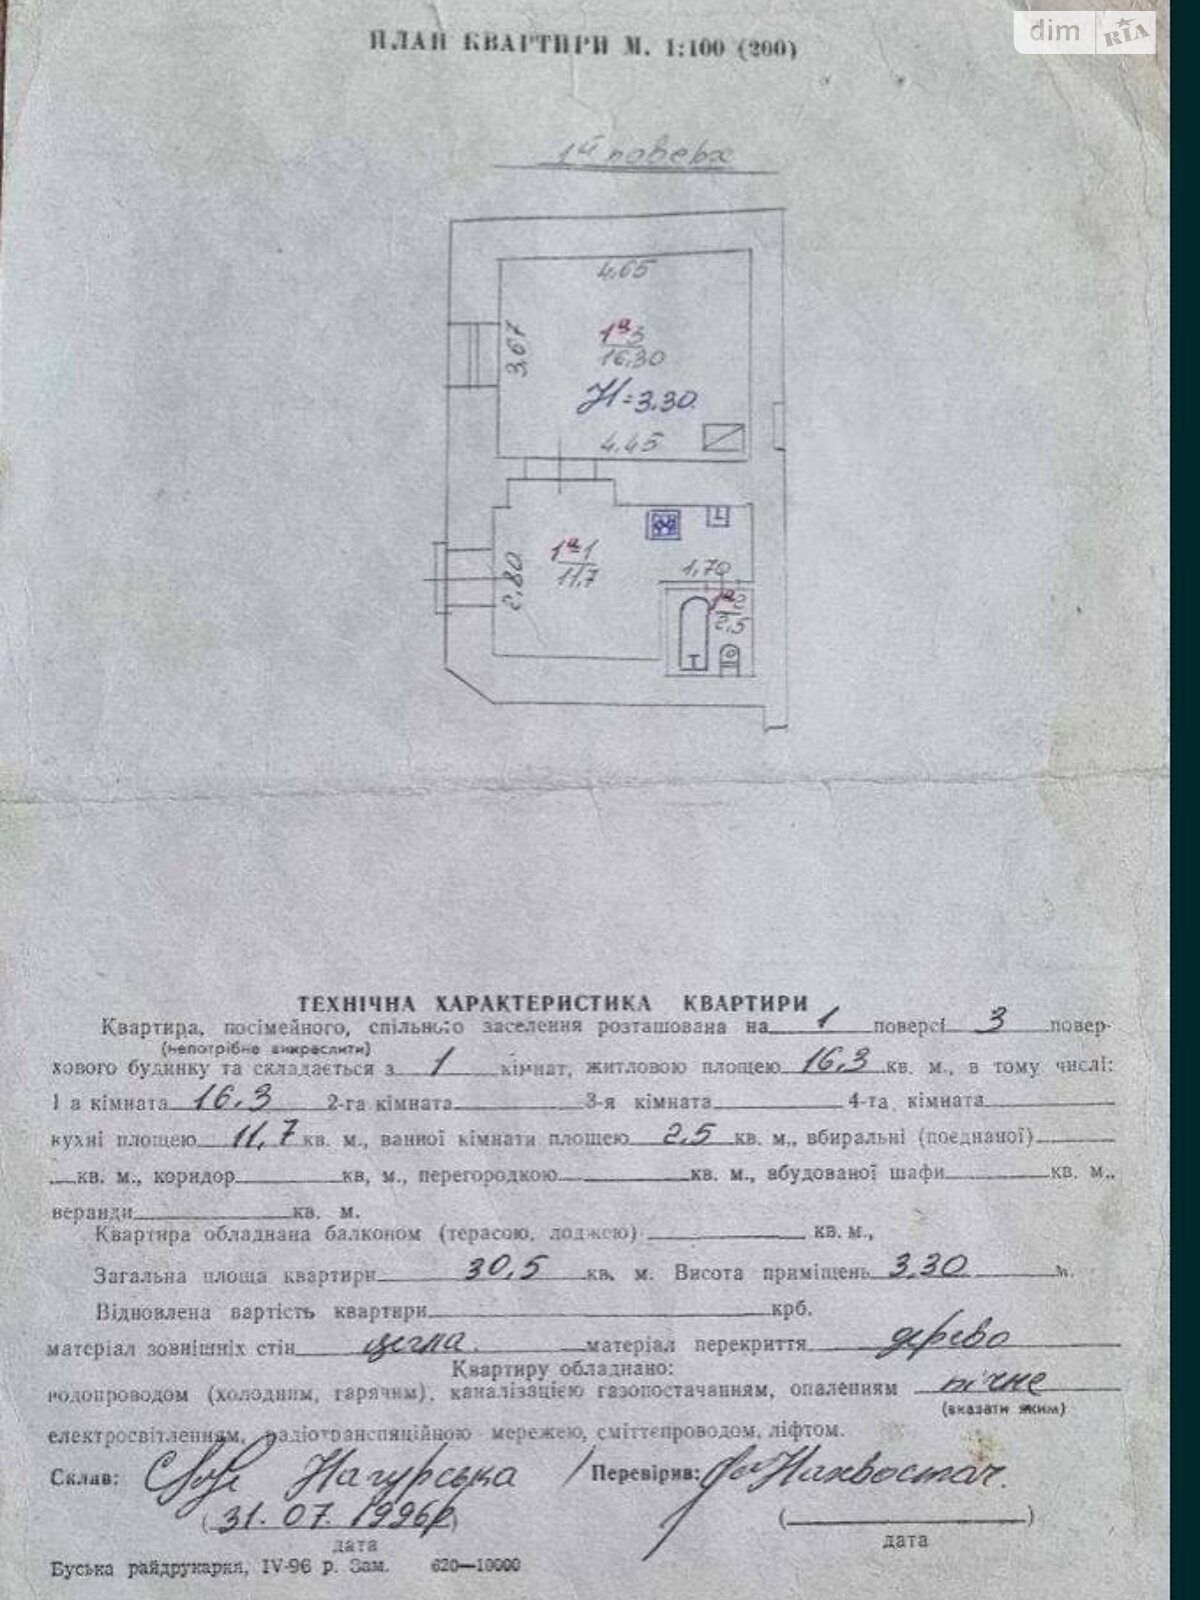 dim RIA
ПЛАН КВАРТИРИ М. 1:100 (200)
1й поверх
4,65
3,67
1а3
16,30
H=3.30
4.45
1а1
11,7
2,80
1,70
1а2
2,5
ТЕХНІЧНА ХАРАКТЕРИСТИКА КВАРТИРИ
Квартира, посімейного, спільного заселення розташована на 1 поверсі 3 повер-
(непотрібне викреслити)
хового будинку та складається з 1 кімнат, житловою площею 16,3 кв. м., в тому числі:
1 а кімната 16,3 2-га кімната 3-я кімната 4-та кімната
кухні площею 11,7 кв. м., ванної кімнати площею 2,5 кв. м., вбиральні (поєднаної)
кв. м., коридор кв, м., перегородкою кв. м., вбудованої шафи кв. м.,
веранди кв. м.
Квартира обладнана балконом (терасою, лоджею) кв. м.,
Загальна площа квартири 30,5 кв. м. Висота приміщень 3,30 м.
Відновлена вартість квартири крб.
матеріал зовнішніх стін цегла. матеріал перекриття дерево
Квартиру обладнано:
водопроводом (холодним, гарячим), каналізацією газопостачанням, опаленням пічне
(вказати яким)
електросвітленням, радіотрансляційною мережею, сміттєпроводом, ліфтом.
Склав: Нагурська Перевірив:
(31.07.1996р) ( )
дата дата
Буська райдрукарня, IV-96 р. Зам. 620—10000